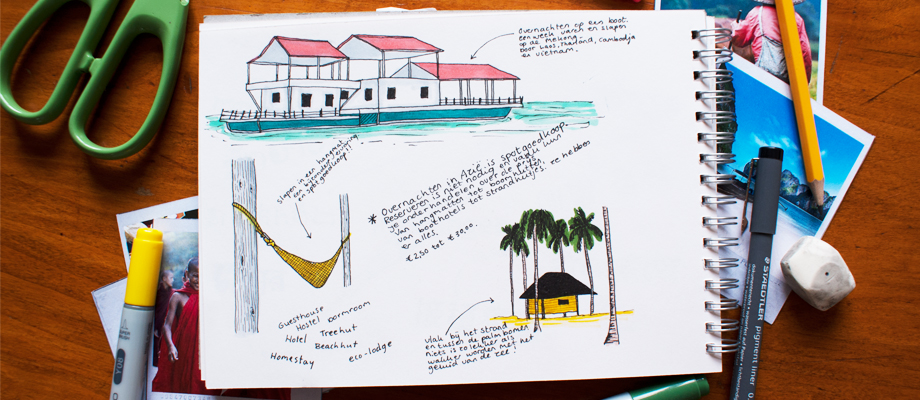 Overnachten op een boot.
een week varen en slapen
op de Mekong
door Laos, Thailand, Cambodja
en Vietnam.
slapen in een hangmat
een bijzondere ervaring
en spotgoedkoop
* Overnachten in Azië is spotgoedkoop.
Reserveren is niet nodig en vaak kun
je onderhandelen over de prijs.
Van hangmatten tot boomhutten,
van boothotels tot strandhuisjes. ze hebben
er alles.
€2,50 tot €30,00.
Guesthouse
Hostel dormroom
Hotel Treehut
Beachhut
Homestay eco-lodge
vlak bij het strand
en tussen de palmbomen
niets is zo lekker als
wakker worden met het
geluid van de zee!
STAEDTLER
pigment liner